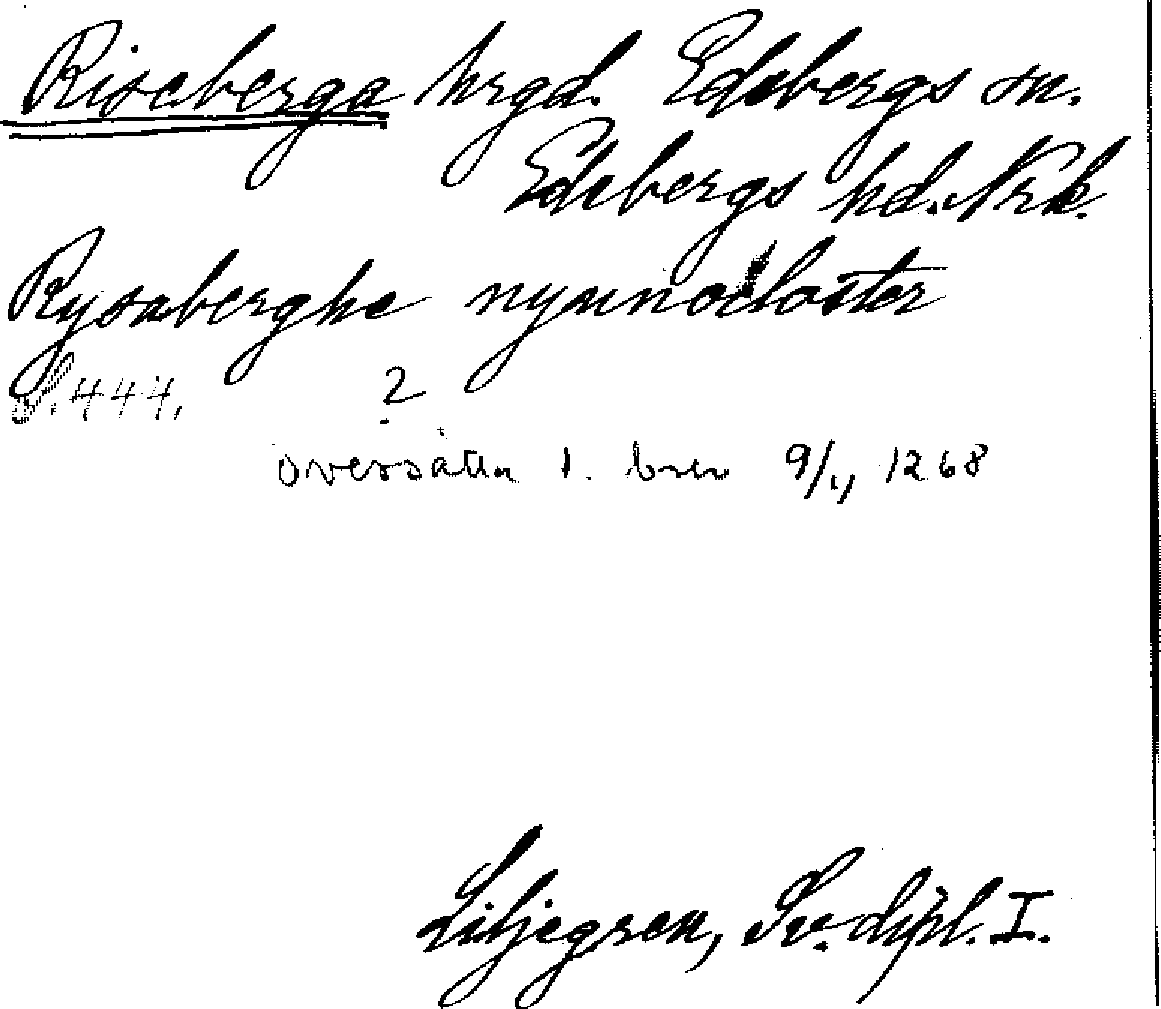 Riseberga hrgd. Edsbergs sn.
Edsbergs hd. Nrk.
Rysaberghe nynnocloster
S. 444. 2
översättn t. brev 9/11 1268
Liljegren, Sv. dipl. I.